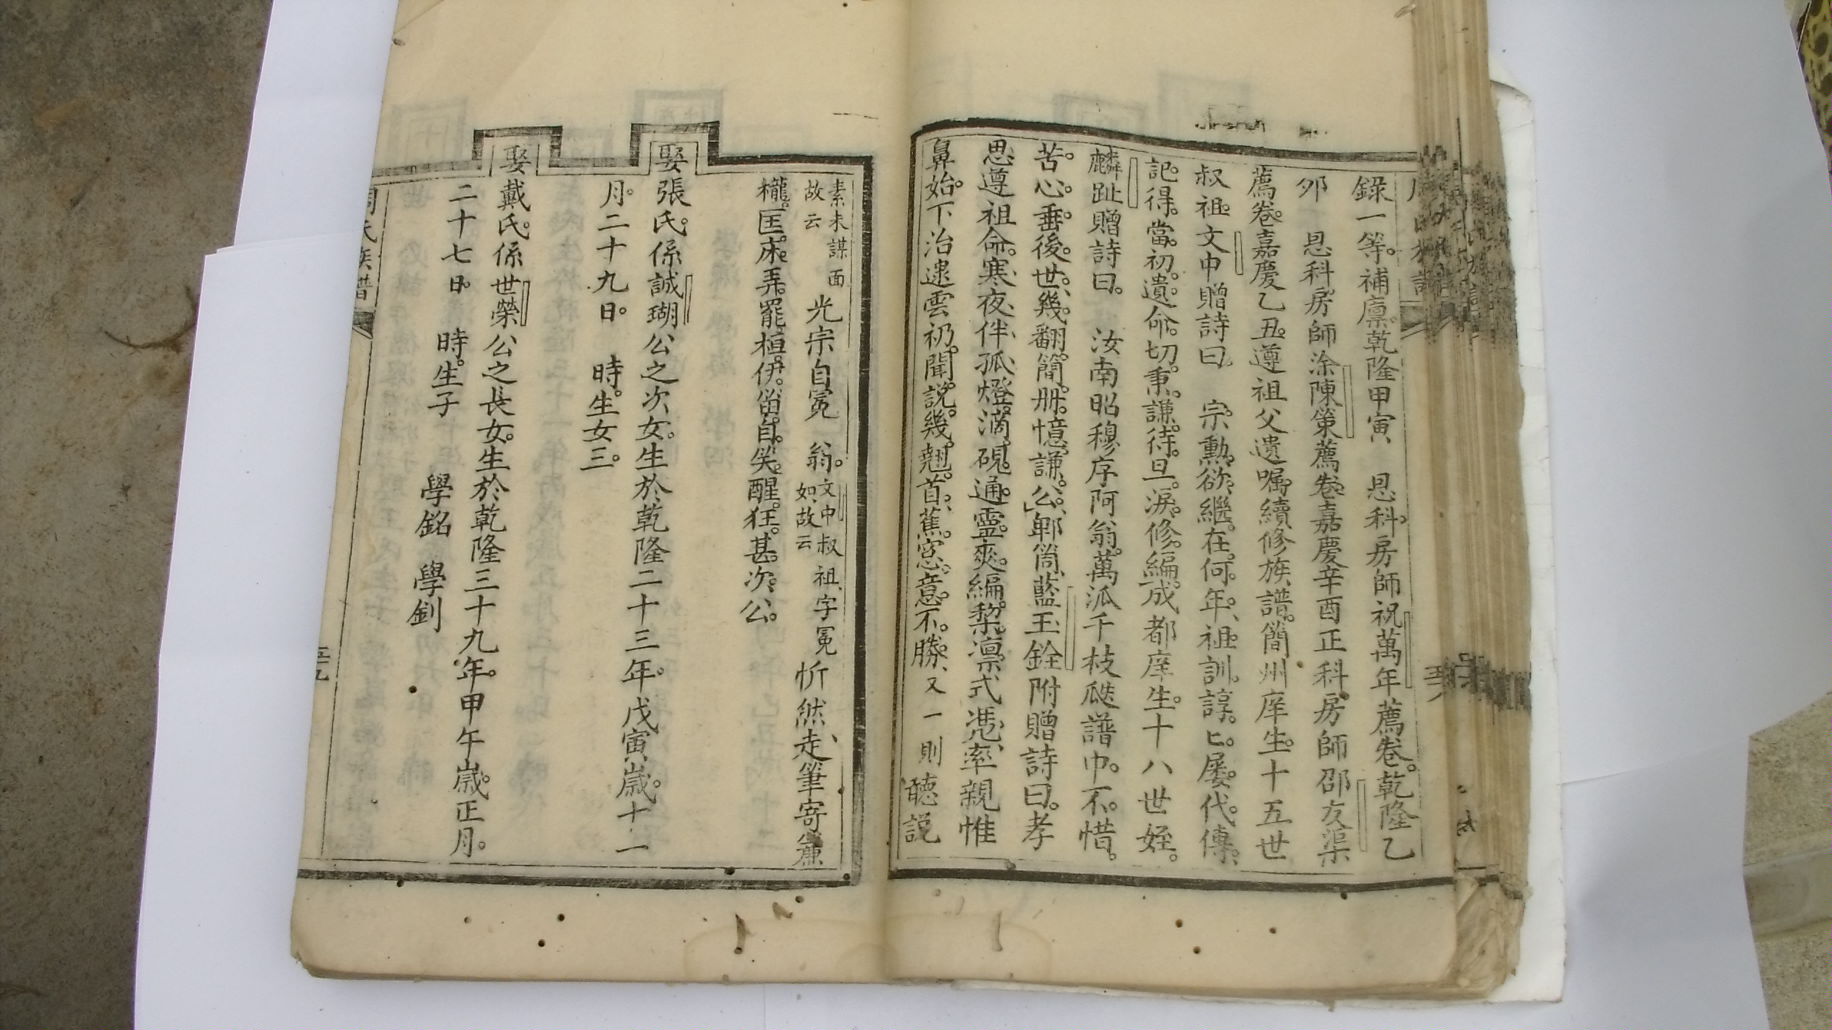 錄一等。補廩。乾隆甲寅 恩科。房師祝萬年薦卷。乾隆乙
夘 恩科房師涂陳策薦卷。嘉慶辛酉正科房師邵友渠
薦卷。嘉慶乙丑。遵祖父遺囑。續修族譜。簡州庠生。十五世
叔祖文中贈詩曰 宗勲欲繼在何年。祖訓諄諄屡代傳。
記得當初遺命切。秉謙待旦淚修編。成都庠生。十八世姪。
麟趾贈詩曰。 汝南昭穆序阿翁。萬派千枝瓞譜中。不惜
苦心垂後世。幾翻簡册憶謙公。郫筒藍玉銓附贈詩曰。孝
思遵祖命。寒夜伴孤燈。滴硯通靈爽。編棃凛式憑。率親惟
鼻始。下治逮雲礽。聞說幾翹首。蕉窓意不勝。又一則 聽説
素未謀面
故云
光宗自冕 翁。
文中叔祖字冕
如故云
忻然走筆寄
櫳。匡床弄罷桓伊笛。自笑醒狂甚次公。
娶張氏。係誠瑚公之次女。生於乾隆二十三年。戊寅歲。十一
月。二十九日。 時。生女三。
娶戴氏。係世榮公之長女。生於乾隆三十九年。甲午歲。正月。
二十七日。 時。生子 學銘 學釗
周氏族譜
五九